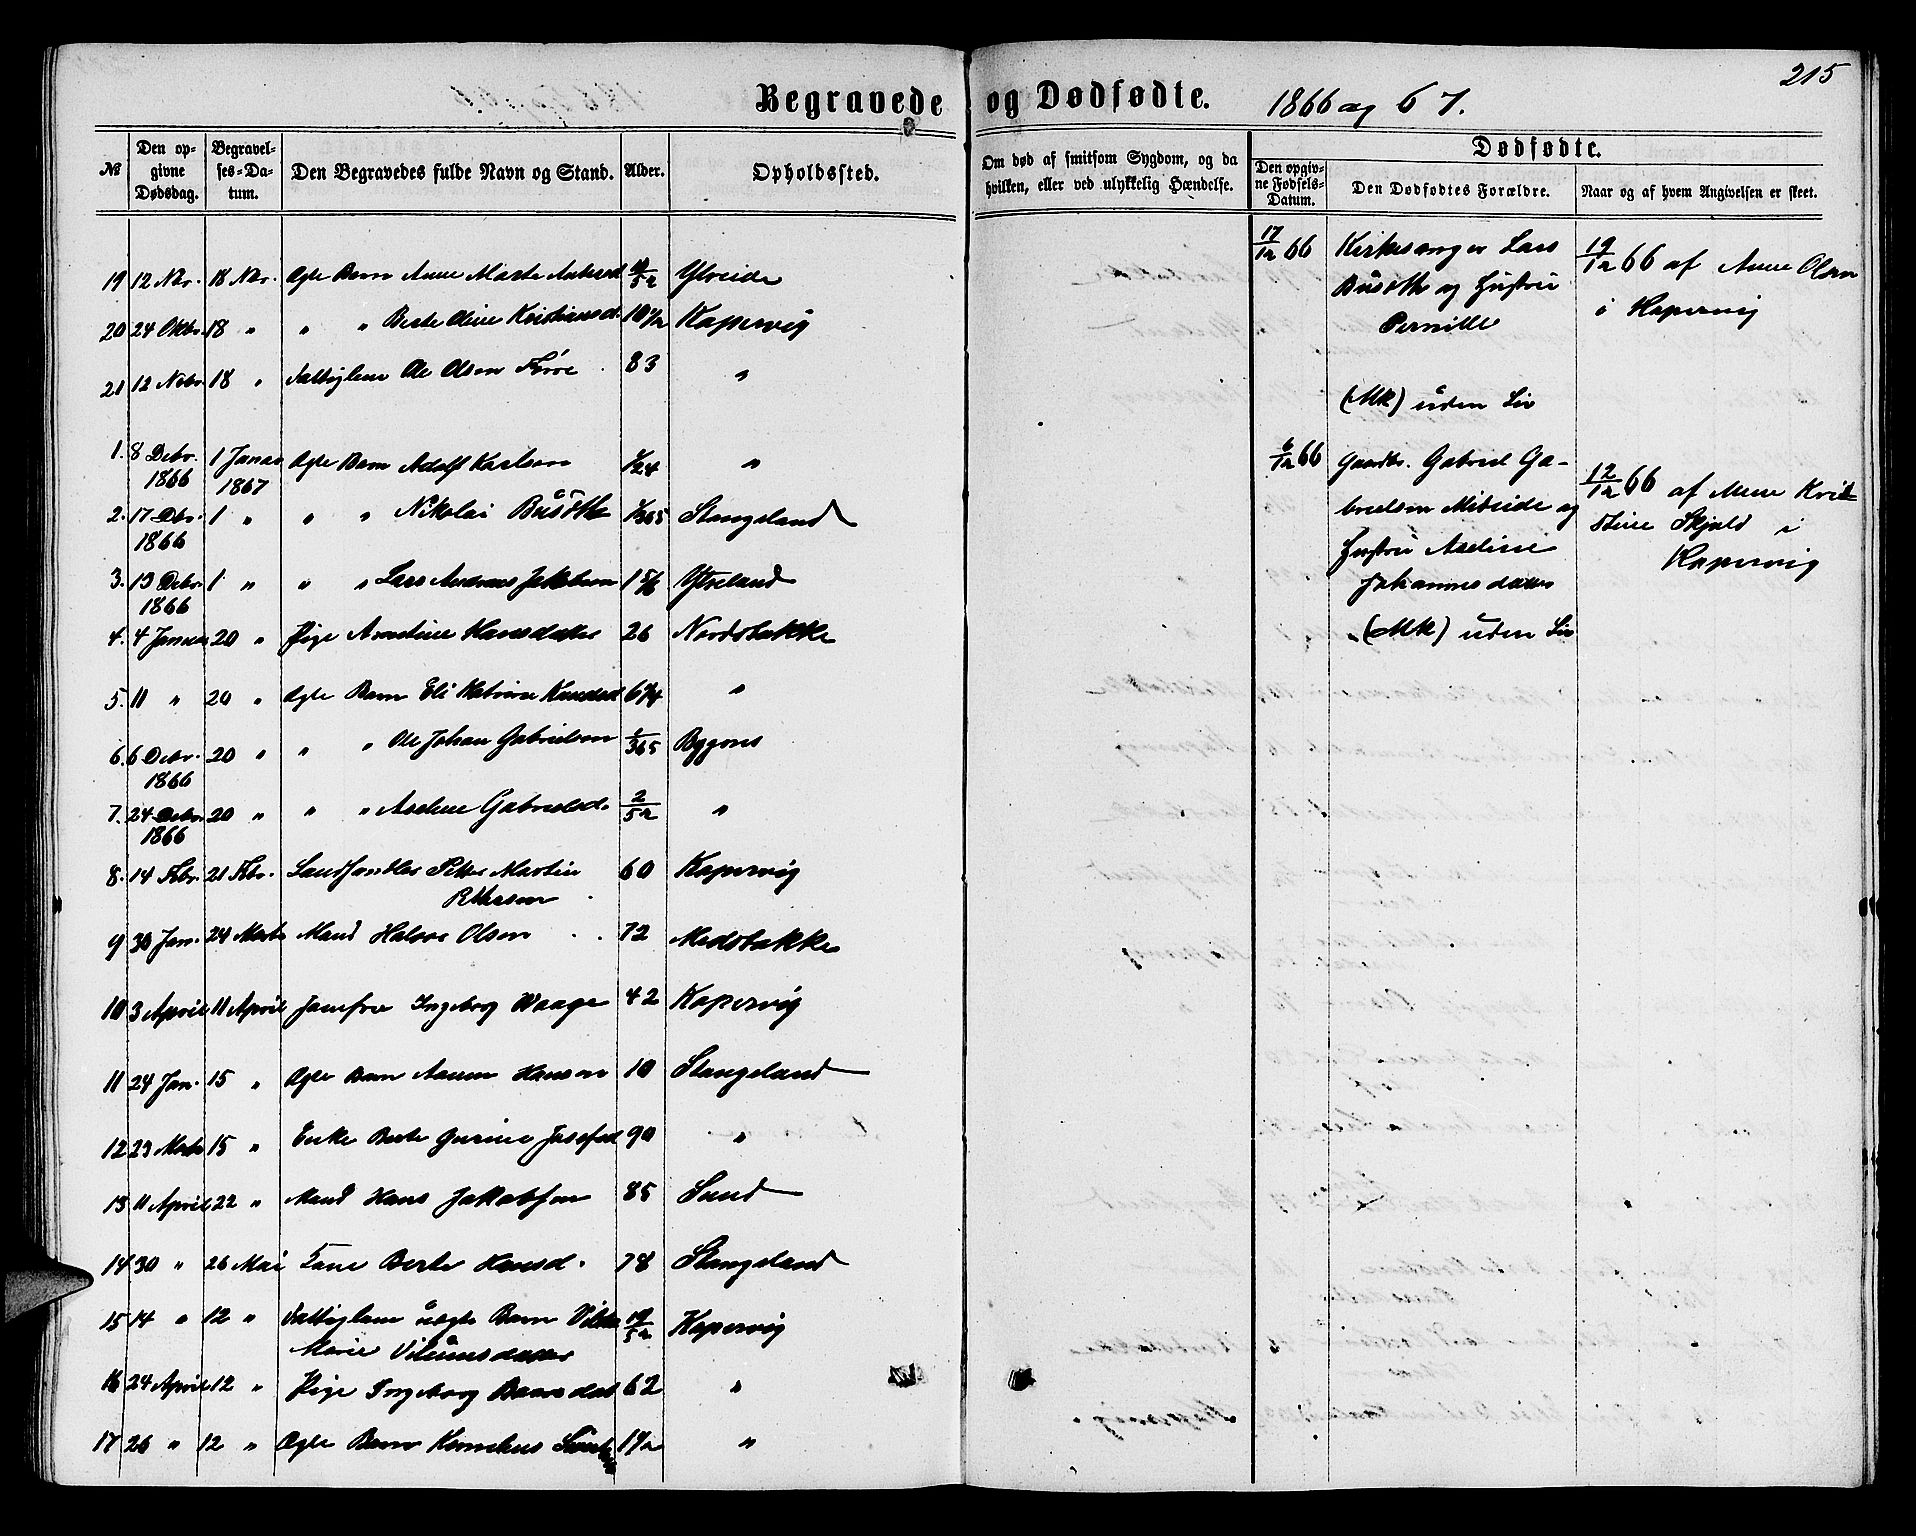 215
Begravede og Dødfødte. 1866 og 67.
№
Den opgivne Dødsdag.
Begravelses-Datum.
Den Begravedes fulde Navn og Stand.
Alder.
Opholdssted.
Om død af smitsom Sygdom, og da hvilken, eller ved ulykkelig Hændelse.
Dødfødte.
Den opgivne Fødsels-Datum.
Den Dødfødtes Forældre.
Naar og af hvem Angivelsen er skeet.
19 12 Nbr. 18 Nbr. Ægte Barn Anne Marte /52 Ytreide
20 24 Oktbr. 18 " " " Berte Oline Kristiansd. 10 1/2 Kopervig
21 12 Nobr. 18 " Fattiglem Ole Olsen 83 "
1. 8 Debr. 1 Januar Ægte Barn Adolf Karlsen 1/24 "
1866 1867
2. 17 Dbr. 1 " " " Nikolai Busöth 1/365 Stangeland
1866
3. 13 Debr. 1 " " " Lars Andreas Jakobsen 1 5/6 Ytreland
1866
4. 4 Januar 20 " Pige Hansdatter 26 Nordstokke
5. 11 " 20 " Ægte Barn Eli Katrine Knudsd. 6 1/4 "
6. 6 Debr. 20 " " " Ole Johan Gabrielsen 1/365 Bygnes
1866
7. 24 Debr. 20 " " " Aseline Gabrielsd. 2/52 "
1866
8. 14 Febr. 21 Febr. Landhandler Peter Martin 60 Kopervig
9 30 Jan. 24 Marts Mand Halvor Olsen 72 Medstokke
10 3 April 11 April Jomfru Ingeborg Waage 42 Kopervig
11 24 Jan. 15 " Ægte Barn Hansen 10 Stangeland
12 23 Marts 15 " Enke Berte Gurine Josefsd 90 "
13 11 April 22 " Mand Hans Jakobsen 85 Sund
14 30 " 26 Mai Berte Hansd. 78 Stangeland
15 14 " 12 " Fattiglem uægte Barn 19/52 Kopervig
Marie
16 24 April 12 " Pige Ingeborg 62 "
17 26 " 12 " Ægte Barn Kornelius 1 1/2 "
17/12 66 Kirkesanger Lars
Busöth og Hustru
Pernille
(Mk) uden Liv
19/12 66 af Anne Olsen
i Kopervig
6/12 66 Gaardbr. Gabriel Ga-
brielsen og
Hustru Aseline
Johannesdatter
(Mk) uden Liv
12/12 66 af Anne Krist-
stine Skjold i
Kopervig